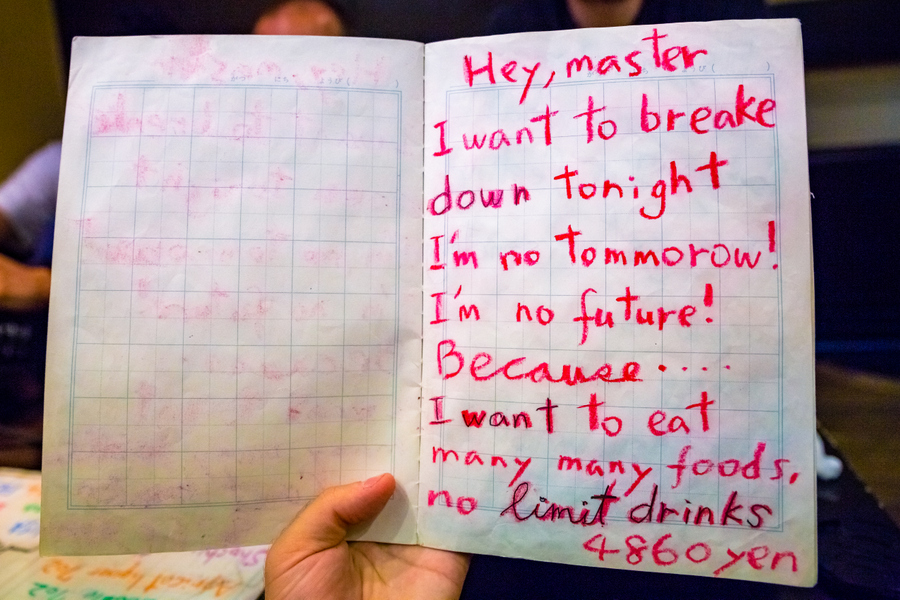 Hey, master
I want to breake
down tonight
I'm no tommorow!
I'm no future!
Because....
I want to eat
many many foods,
no limit drinks
4860 yen